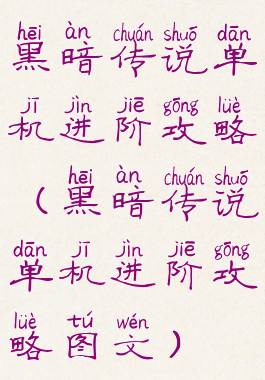 hēi àn chuán shuō dān
黑暗传说单
jī jìn jiē gōng lüè
机进阶攻略
hēi àn chuán shuō
（黑暗传说
dān jī jìn jiē gōng
单机进阶攻
lüè tú wén
略图文）